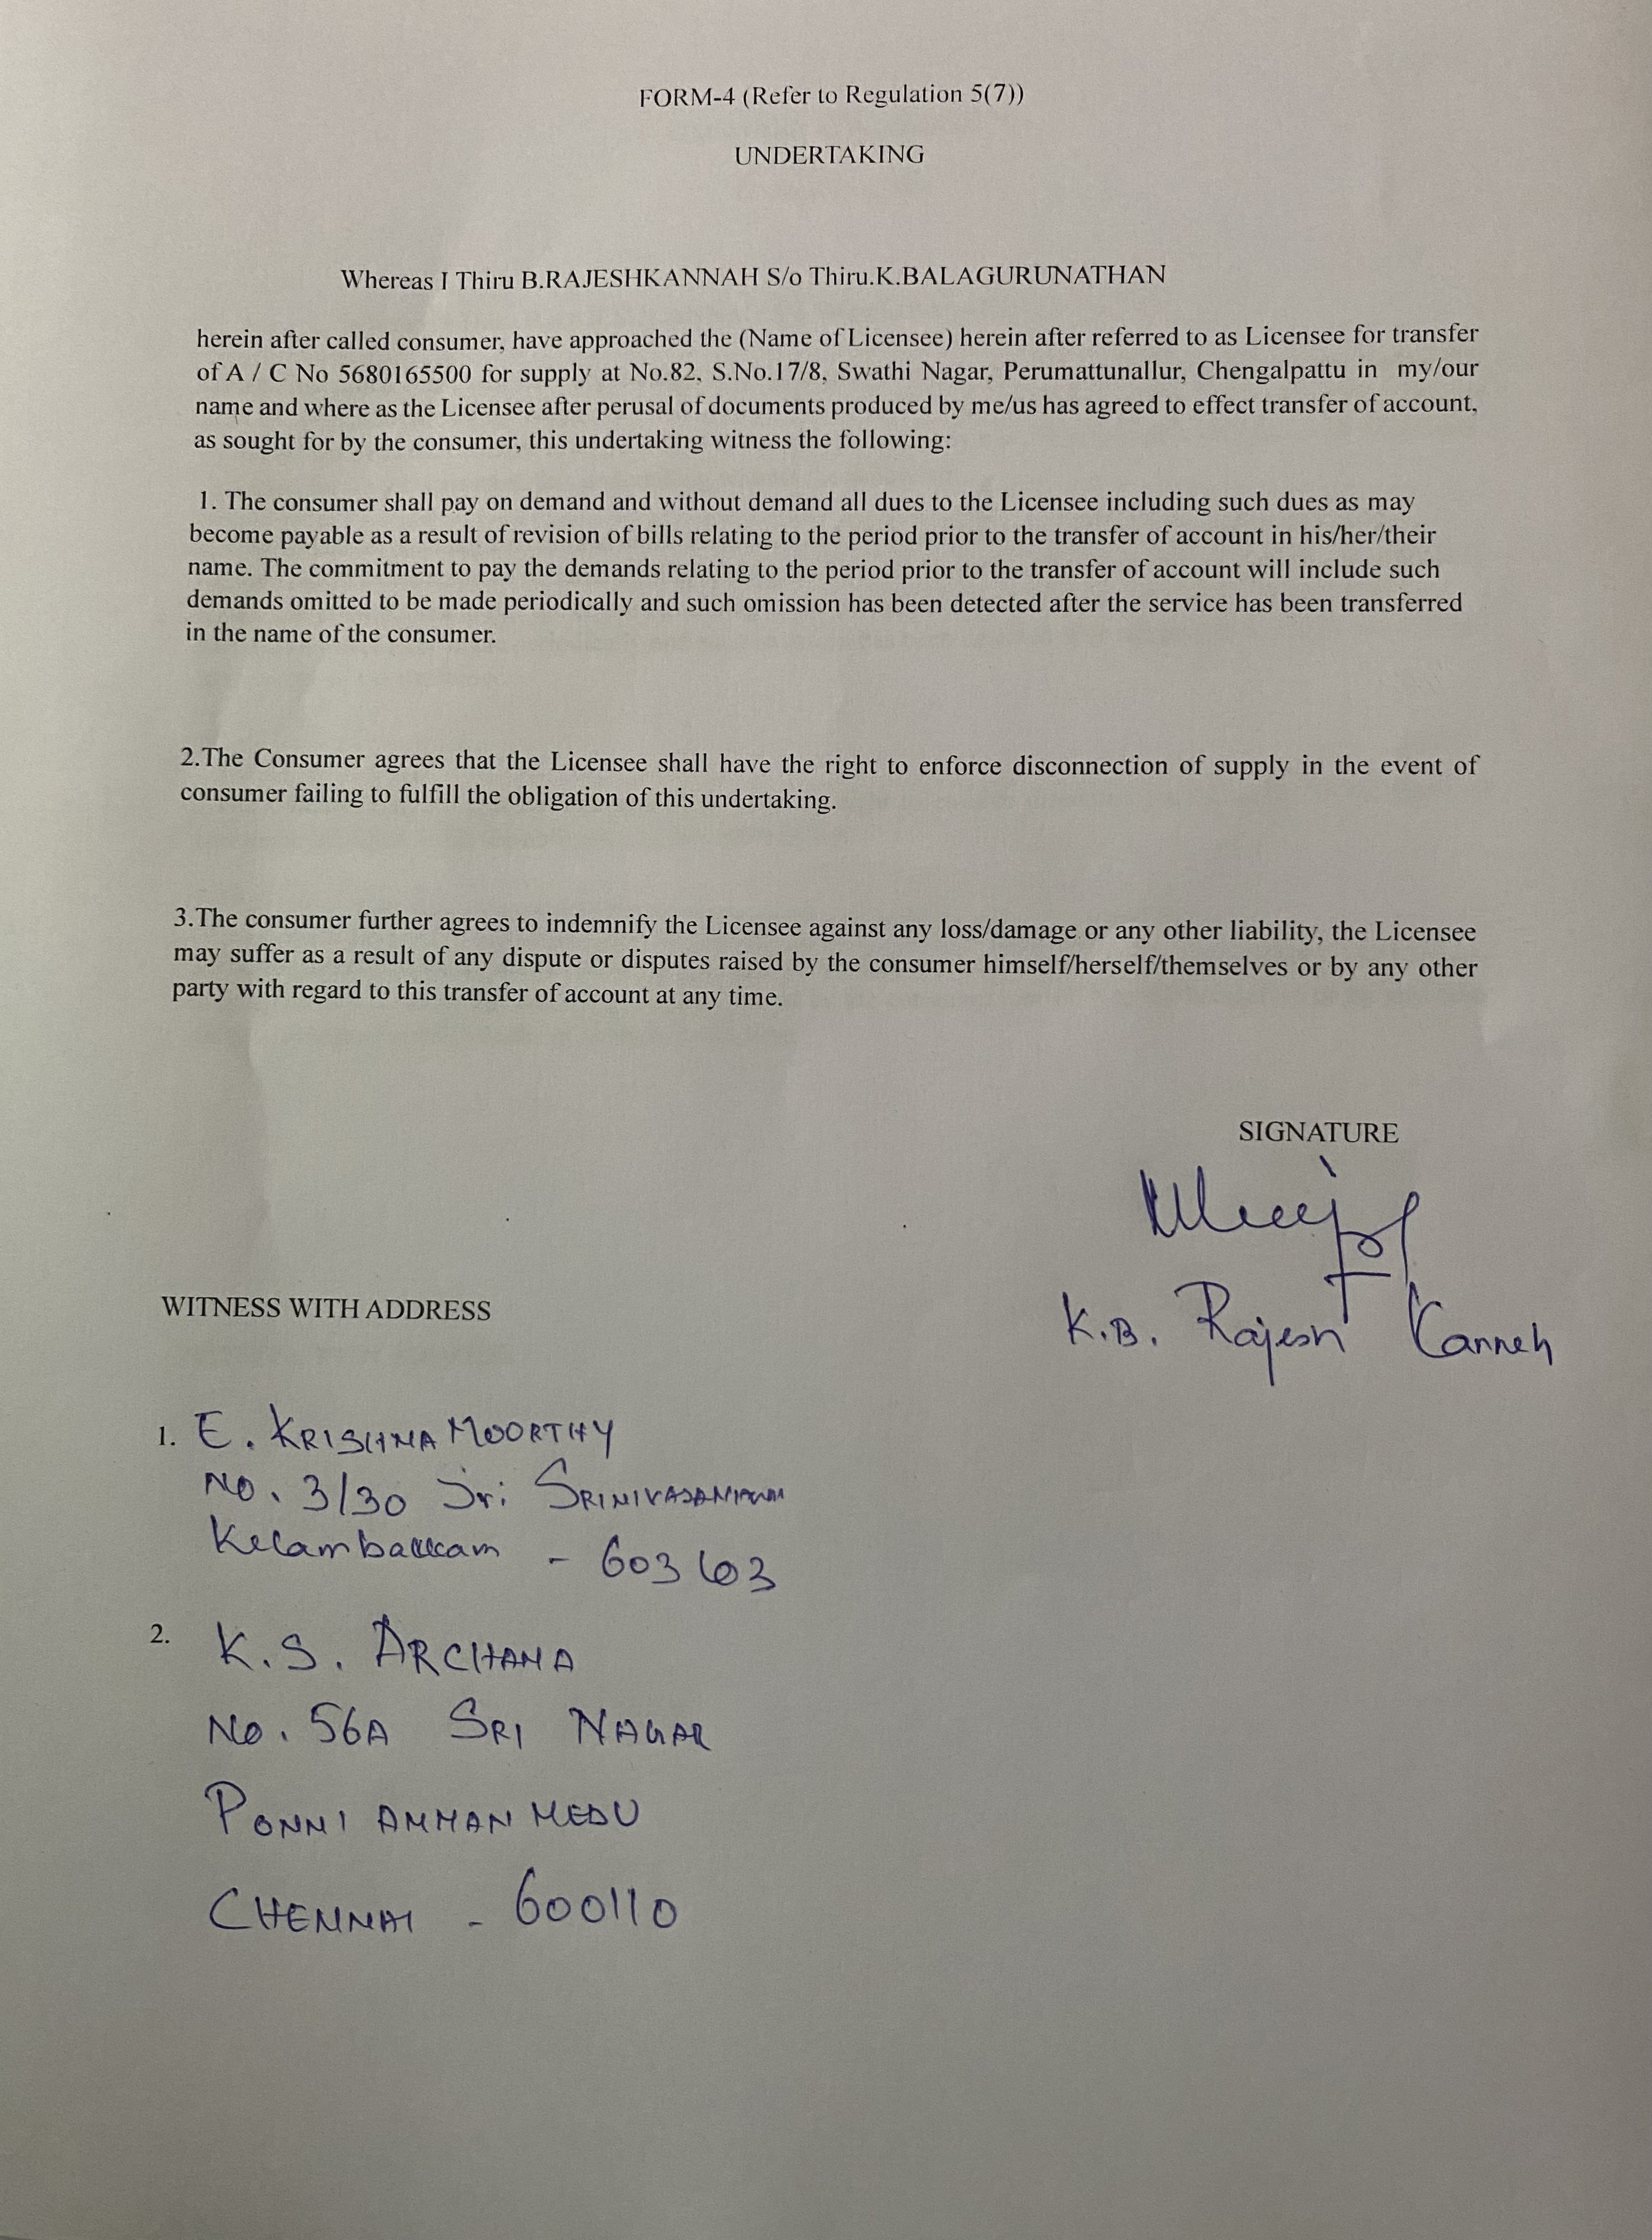 FORM-4 (Refer to Regulation 5(7))
UNDERTAKING
Whereas I Thiru B.RAJESHKANNAH S/o Thiru.K.BALAGURUNATHAN
herein after called consumer, have approached the (Name of Licensee) herein after referred to as Licensee for transfer
of A / C No 5680165500 for supply at No.82, S.No.17/8, Swathi Nagar, Perumattunallur, Chengalpattu in my/our
name and where as the Licensee after perusal of documents produced by me/us has agreed to effect transfer of account,
as sought for by the consumer, this undertaking witness the following:
1. The consumer shall pay on demand and without demand all dues to the Licensee including such dues as may
become payable as a result of revision of bills relating to the period prior to the transfer of account in his/her/their
name. The commitment to pay the demands relating to the period prior to the transfer of account will include such
demands omitted to be made periodically and such omission has been detected after the service has been transferred
in the name of the consumer.
2.The Consumer agrees that the Licensee shall have the right to enforce disconnection of supply in the event of
consumer failing to fulfill the obligation of this undertaking.
3.The consumer further agrees to indemnify the Licensee against any loss/damage or any other liability, the Licensee
may suffer as a result of any dispute or disputes raised by the consumer himself/herself/themselves or by any other
party with regard to this transfer of account at any time.
SIGNATURE
K.B. Rajesh Kanneh
WITNESS WITH ADDRESS
1. E. KRISHNA MOORTHY
NO. 3/30 Sri
Kelambakkam - 603103
2. K.S. ARCHANA
No. 56A SRI NAGAR
PONNI AMMAN MEDU
CHENNAI - 600110